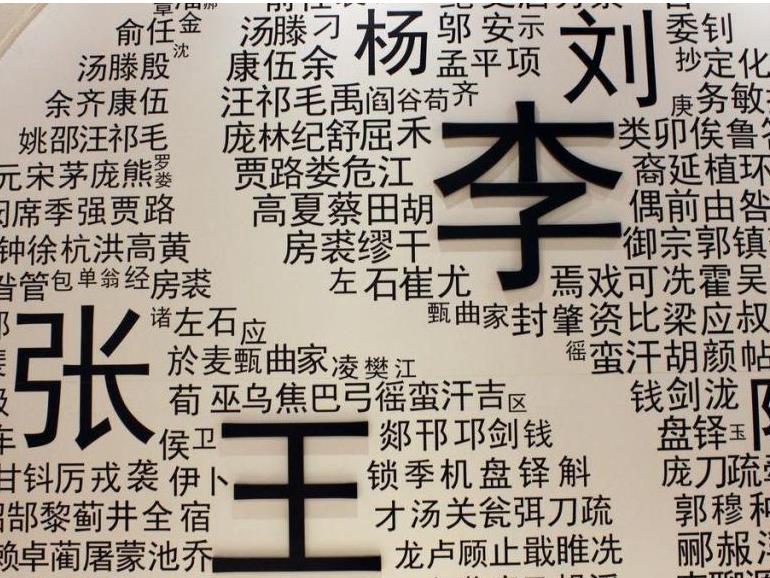 俞任金
汤滕刁
杨
邬安示
刘
委钊
汤滕殷沈
康伍余
孟平项
抄定化
余齐康伍
汪祁毛禹阎谷荀齐
庚务敏
姚邵汪祁毛
庞林纪舒屈禾
李
类卯俟鲁
元宋茅庞熊罗娄
贾路娄危江
裔延植环
席季强贾路
高夏蔡田胡
偶前由昝
钟徐杭洪高黄
房裘缪干
御宗郭镇
昝管包单翁经房裘
左石崔尤
焉戏可冼霍吴
张
诸左石应
甄曲家封肇资比梁应叔
於麦甄曲家凌樊江
徭蛮汗胡颜帖
荀巫乌焦巴弓徭蛮汗吉区
钱剑泷
侯卫
王
郯邗邛剑钱
盘铎玉
甘钭厉戎袭伊卜
锁季机盘铎斛
庞刀疏
郜黎蓟井全宿
才汤关瓮弭刀疏
郭穆种
赖卓蔺屠蒙池乔
龙卢顾止戢睢冼
郦赧